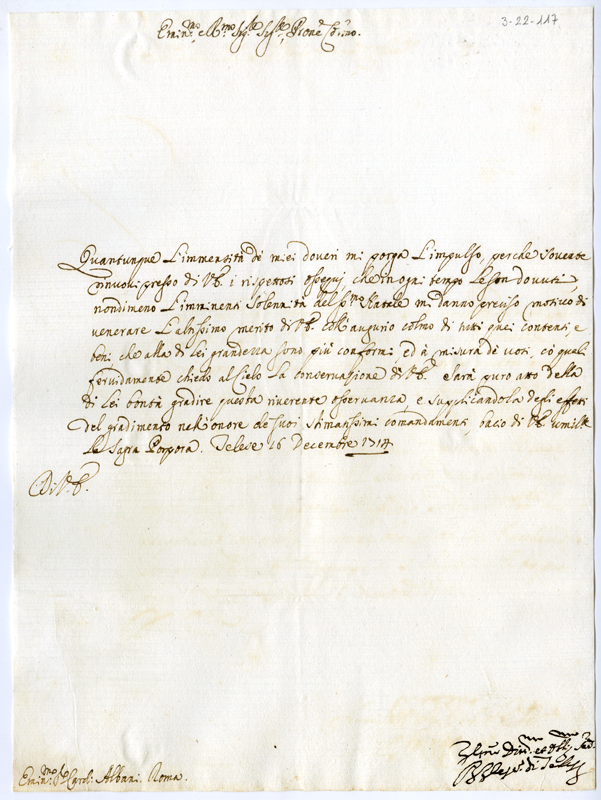 3-22-117
Emin.mo e Rmo Sig.r Sig.r Prone Colmo.
Quantunque l'immensità de miei doveri mi porga l'impulso, perche sovente
rinuovi presso di V.E. i rispettosi ossequi, che in ogni tempo le son dovuti,
nondimeno l'imminente Solennità del S.mo Natale mi danno preciso motivo di
venerare l'altissimo merito di V.E. coll'augurio colmo di tutti quei contenti, e
beni che alla di lei grandezza sono più conformi, ed à misura de voti, có quali
fervidamente chiedo al Cielo la conservazione di V.E. e sarà puro atto della
di lei bontà gradire questa riverente osservanza, e supplicandola degli effetti
del gradimento nell'onore de suoi stimatissimi comandamenti, bacio di V.E. umilte
la Sagra Porpora. Telese 16 Decembre 1714
Di V.E.
Emin.mo Sr Card: Albani. Roma.